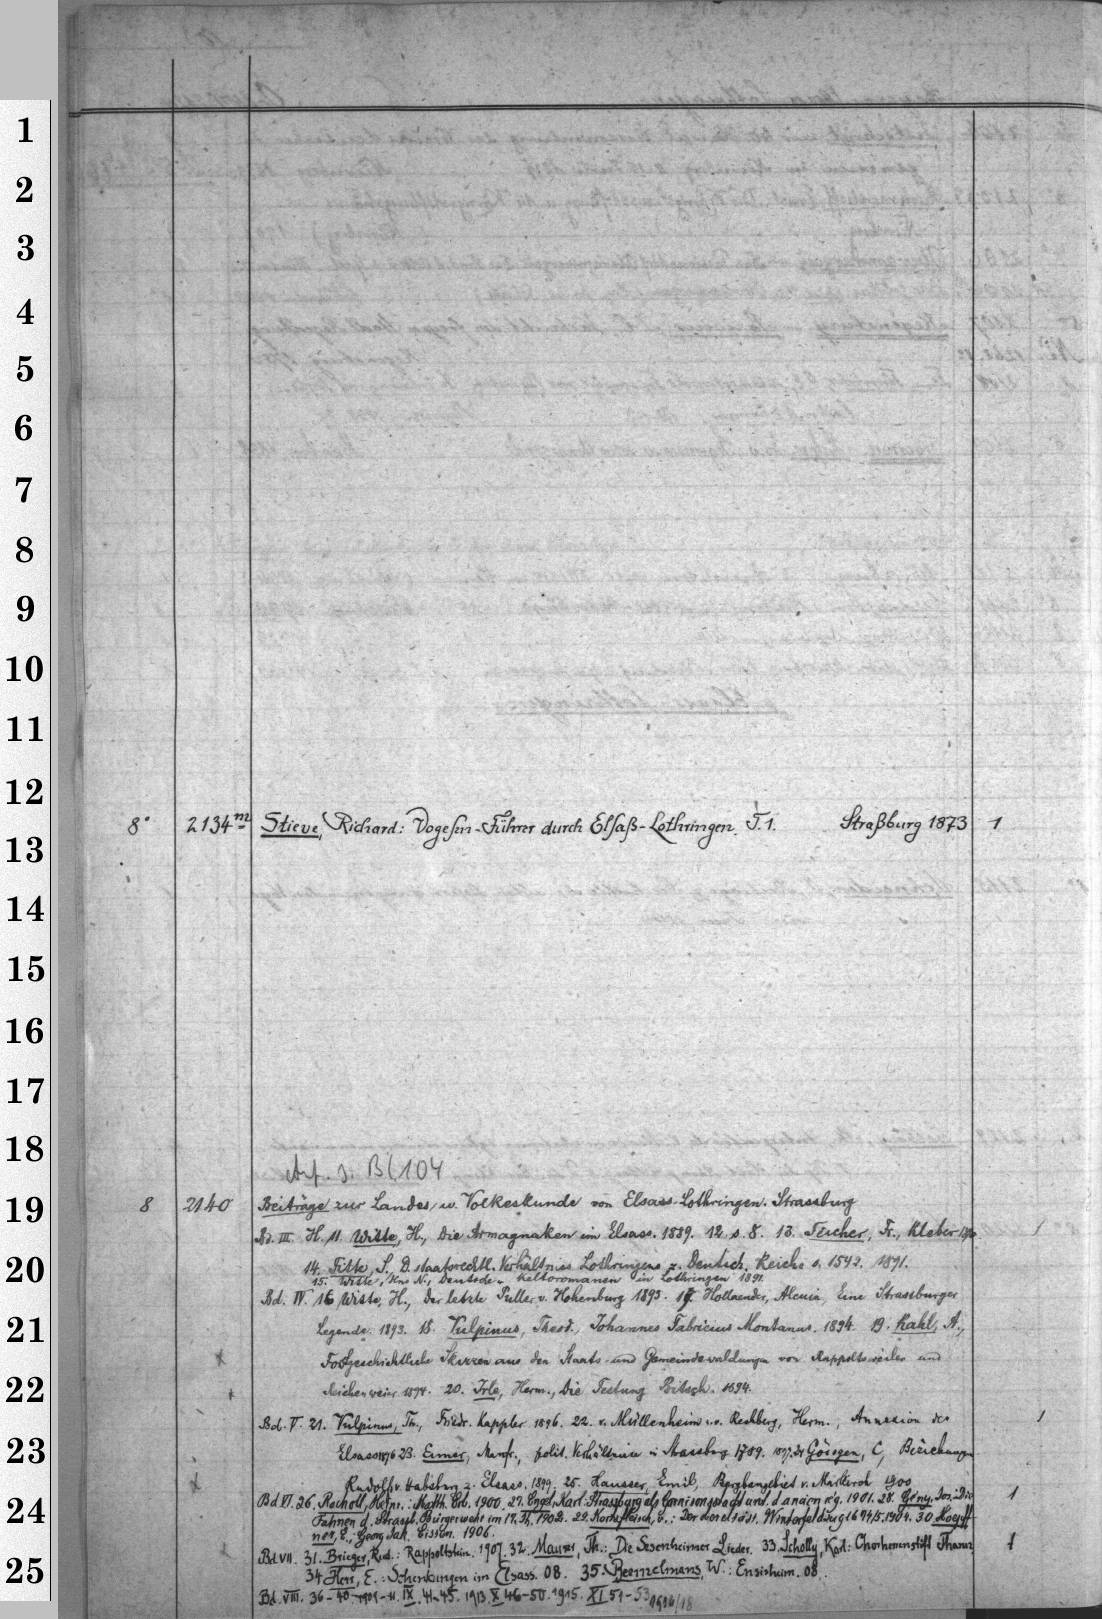 1
2
3
4
5
6
7
8
9
10
11
12
8° 2134m Stieve, Richard: Vogesen-Führer durch Elsaß-Lothringen. T. 1. Straßburg 1873 1
13
14
15
16
17
18
Anf. s. Bl. 104
19
8 2140 Beiträge zur Landes- u. Volkeskunde von Elsass-Lothringen. Strassburg
Bd. III H. 11 Witte, H., Die Armagnaken im Elsass. 1889. 12 s. 8. 13. Teicher, Fr., Kleber
20
14. Fitte, S., D. staatsrechtl. Verhältniss Lothringens z. Deutsch. Reiche s. 1542. 1891.
15. Witte, Hns N., Deutsche u. Keltoromanen in Lothringen 1891.
Bd. IV. 16 Witte, H., Der letzte Puller v. Hohenburg 1893. 17. Hollaender, Alcuin, Eine Strassburger
21
Legende. 1893. 18. Vulpinus, Theod., Johannes Fabricius Montanus. 1894. 19. Kahl, A.,
Forstgeschichtliche Skizzen aus den Staats- und Gemeindewaldungen von Rappoltsweiler und
22
Reichenweier 1894. 20. Irle, Herm., Die Festung Bitsch. 1894.
Bd. V. 21. Vulpinus, Th., Friedr. Kappler 1896. 22. v. Müllenheim u. v. Rechberg, Herm., Annexion des 1
23
Elsass 1896 23. Eimer, Manfr., polit. Verhältnisse in Strassburg 1789. 1897. 24 Görgen, C, Beziehungen
Rudolfs v. Habsburg z. Elsass. 1899, 25. Hausser, Emil, Bergbaugebiet v. Markirch 1900
Bd VI. 26. Reinoll, Heinr.: Matth. Erb. 1900. 27. Engel, Karl: Strassburg als Garnisonstadt und. d ancien rég. 1901. 28. Gény, Jos.: Die 1
24
Fahnen d. Strassb. Bürgerwehr im 17. Jh. 1902. 29. : Der Winterfeldzug 1674/5. 1904. 30 Hoepff-
ner, E., Georg Jak. Eissen. 1906.
Bd VII. 31. Brieger, Rud.: Rappoltstein. 1907. 32. Maurer, Th.: Die Sesenheimer Lieder. 33. Scholly, Karl: Chorherrenstift Thann 1
25
34 Herr, E.: Schenkungen im Elsass. 08. 35. Beemelmans, W.: Ensisheim. 08.
Bd. VIII. 36-40. 1909-11. IX. 41-45. 1913. X 46-50. 1915. XI 51-53